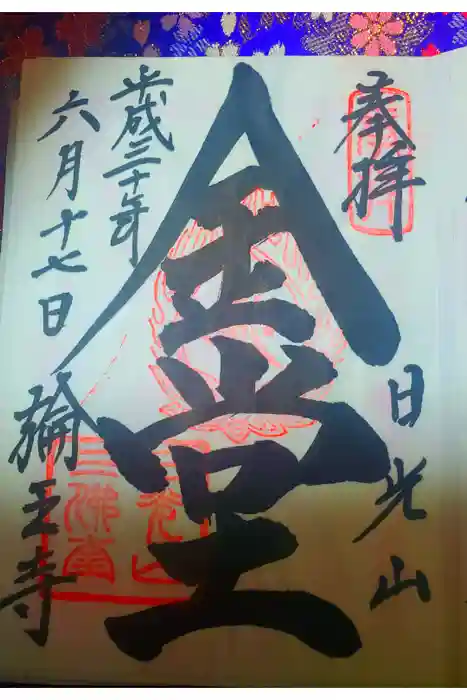 奉拝
日光山
金堂
平成三十年
六月十七日
輪王寺